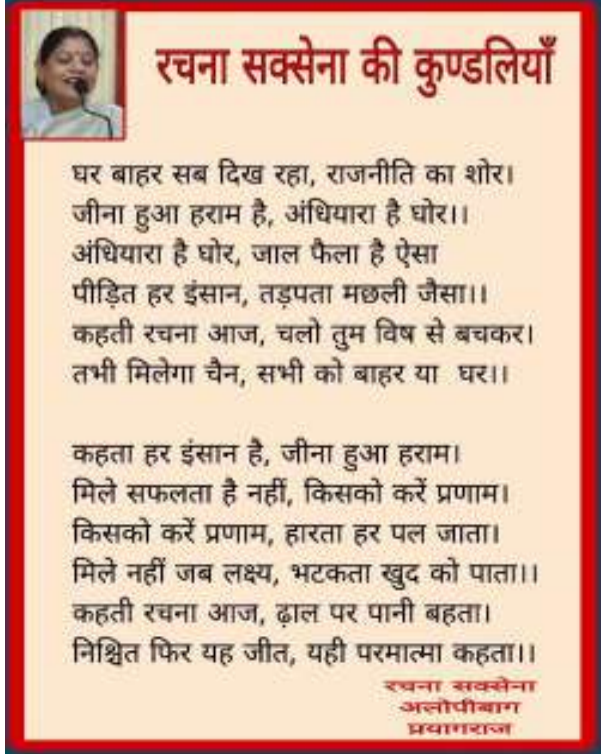 रचना सक्सेना की कुण्डलियाँ
घर बाहर सब दिख रहा, राजनीति का शोर।
जीना हुआ हराम है, अंधियारा है घोर।।
अंधियारा है घोर, जाल फैला है ऐसा
पीड़ित हर इंसान, तड़पता मछली जैसा।।
कहती रचना आज, चलो तुम विष से बचकर।
तभी मिलेगा चैन, सभी को बाहर या घर।।
कहता हर इंसान है, जीना हुआ हराम।
मिले सफलता है नहीं, किसको करें प्रणाम।
किसको करें प्रणाम, हारता हर पल जाता।
मिले नहीं जब लक्ष्य, भटकता खुद को पाता।।
कहती रचना आज, ढ़ाल पर पानी बहता।
निश्चित फिर यह जीत, यही परमात्मा कहता।।
रचना सक्सेना
अलोपीबाग
प्रयागराज